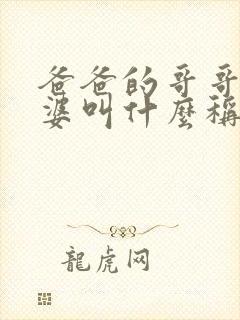 爸爸的哥哥
婆叫什麼稱
龍虎网